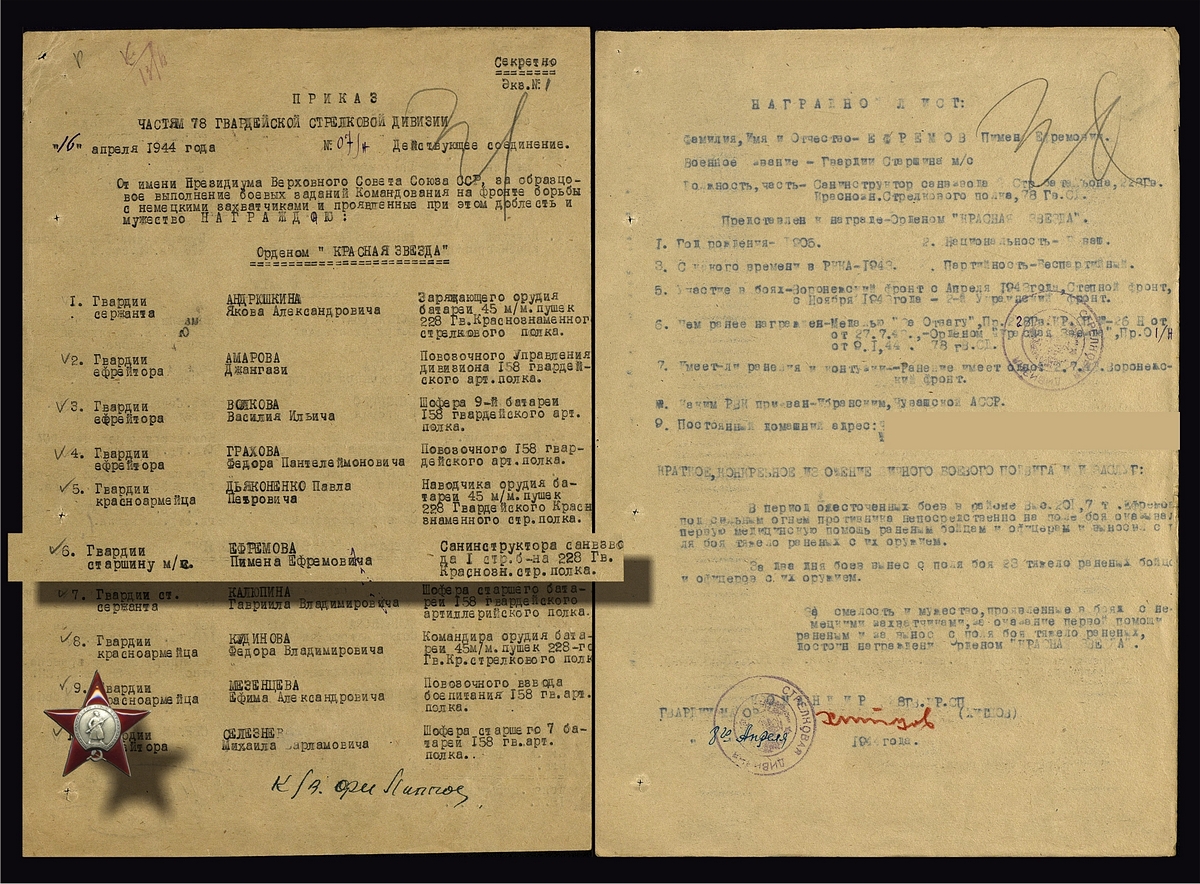 Секретно
Экз.№ 1
ПРИКАЗ
ЧАСТЯМ 78 ГВАРДЕЙСКОЙ СТРЕЛКОВОЙ ДИВИЗИИ
"16" апреля 1944 года № 07/н Действующее соединение.
От имени Президиума Верховного Совета Союза ССР, за образцо-
вое выполнение боевых заданий Командования на фронте борьбы
с немецкими захватчиками и проявленные при этом доблесть и
мужество НАГРАЖДАЮ:
Орденом "КРАСНАЯ ЗВЕЗДА"
1. Гвардии АНДРЮШКИНА Заряжающего орудия
сержанта Якова Александровича батареи 45 м/м.пушек
228 Гв.Краснознаменного
стрелкового полка.
2. Гвардии АМАРОВА Повозочного Управления
ефрейтора Джангази дивизиона 158 гвардей-
ского арт.полка.
3. Гвардии ВОЛКОВА Шофера 9-й батареи
ефрейтора Василия Ильича 158 гвардейского арт.
полка.
4. Гвардии ГРАХОВА Повозочного 158 гвар-
ефрейтора Федора Пантелеймоновича дейского арт.полка.
5. Гвардии ДЬЯКОНЕНКО Павла Наводчика орудия ба-
красноармейца Петровича тареи 45 м/м.пушек
228 Гвардейского Красн
знаменного стр.полка.
6. Гвардии ЕФРЕМОВА Санинструктора санвзво
старшину м/с. Пимена Ефремовича да 1 стр.б-на 228 Гв.
Краснозн.стр.полка.
7. Гвардии ст. КАЛЮПИНА Шофера старшего бата-
сержанта Гавриила Владимировича реи 158 гвардейского
артиллерийского полка.
8. Гвардии КУДИНОВА Командира орудия бата-
красноармейца Федора Владимировича реи 45м/м.пушек 228-го
Гв.Кр.стрелкового полк
9. Гвардии МЕЗЕНЦЕВА Повозочного взвода
красноармейца Ефима Александровича боепитания 158 гв.арт.
полка.
СЕЛЕЗНЕВ Шофера старшего 7 ба-
Михаила Варламовича тареи 158 гв.арт.
полка.
НАГРАДНОЙ ЛИСТ:
Фамилия,Имя и Отчество- ЕФРЕМОВ Пимен Ефремович.
Военное звание - Гвардии Старшина м/с
Должность,часть- Санинструктор санвзвода Стр.батальона,228Гв.
Краснозн.Стрелкового полка,78 Гв.СД.
Представлен к награде-Орденом "КРАСНАЯ ЗВЕЗДА".
1. Год рождения- 1905. 2. Национальность- Чуваш.
3. С какого времени в РККА-1943. . Партийность-Беспартийный.
5. Участие в боях-Воронежский фронт с Апреля 1943года,Степной фронт,
с Ноября 1943года - 2-й Украинский фронт.
6. Чем ранее награжден-Медалью "За Отвагу",Пр. 28Гв.КР.СП.№-26 Н от
от 27.7.43г.,-Орденом "Красная Звезда",Пр.01/Н
от 9.1.44 . 78 гв.СД.
7. Имеет-ли ранения и контузии--Ранение имеет одно- .7.43.Воронежс-
кий фронт.
8. Каким РВК призван-Ибранским,Чувашской АССР.
9. Постоянный домашний адрес:
КРАТКОЕ,КОНКРЕТНОЕ ИЗЛОЖЕНИЕ ЛИЧНОГО БОЕВОГО ПОДВИГА ИЛИ ЗАСЛУГ:
В период ожесточенных боев в районе Выс.201,7 т. Ефремов
под сильным огнем противника непосредственно на поле боя оказывал
первую медицинскую помощь раненым бойцам и офицерам и выносил с п
ля боя тяжело раненых с их оружием.
За два дня боев вынес с поля боя 23 тяжело раненых бойцо
и офицеров с их оружием.
За смелость и мужество,проявленные в боях с не-
мецкими захватчиками,за оказание первой помощи
раненым и за вынос с поля боя тяжело раненых,
достоин награждения Орденом "КРАСНАЯ ЗВЕЗДА".
КОМАНДИР 228гв.КР.СП
ГВАРДИИ (ХИТЦОВ)
8го Апреля 1944 года.
СТРЕЛКОВАЯ ДИВИЗИЯ